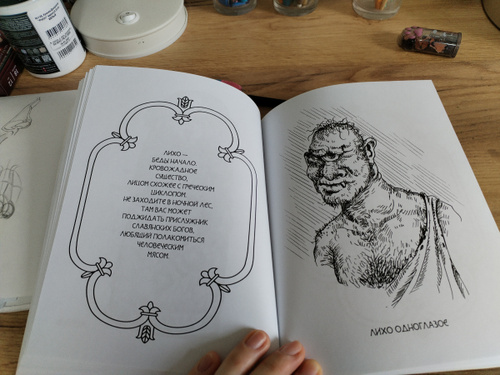 ЛИХО —
БЕДЫ НАЧАЛО.
КРОВОЖАДНОЕ
СУЩЕСТВО,
ЛИЦОМ СХОЖЕЕ С ГРЕЧЕСКИМ
ЦИКЛОПОМ.
НЕ ЗАХОДИТЕ В НОЧНОЙ ЛЕС,
ТАМ ВАС МОЖЕТ
ПОДЖИДАТЬ ПРИСЛУЖНИК
СЛАВЯНСКИХ БОГОВ,
ЛЮБЯЩИЙ ПОЛАКОМИТЬСЯ
ЧЕЛОВЕЧЕСКИМ
МЯСОМ.
ЛИХО ОДНОГЛАЗОЕ